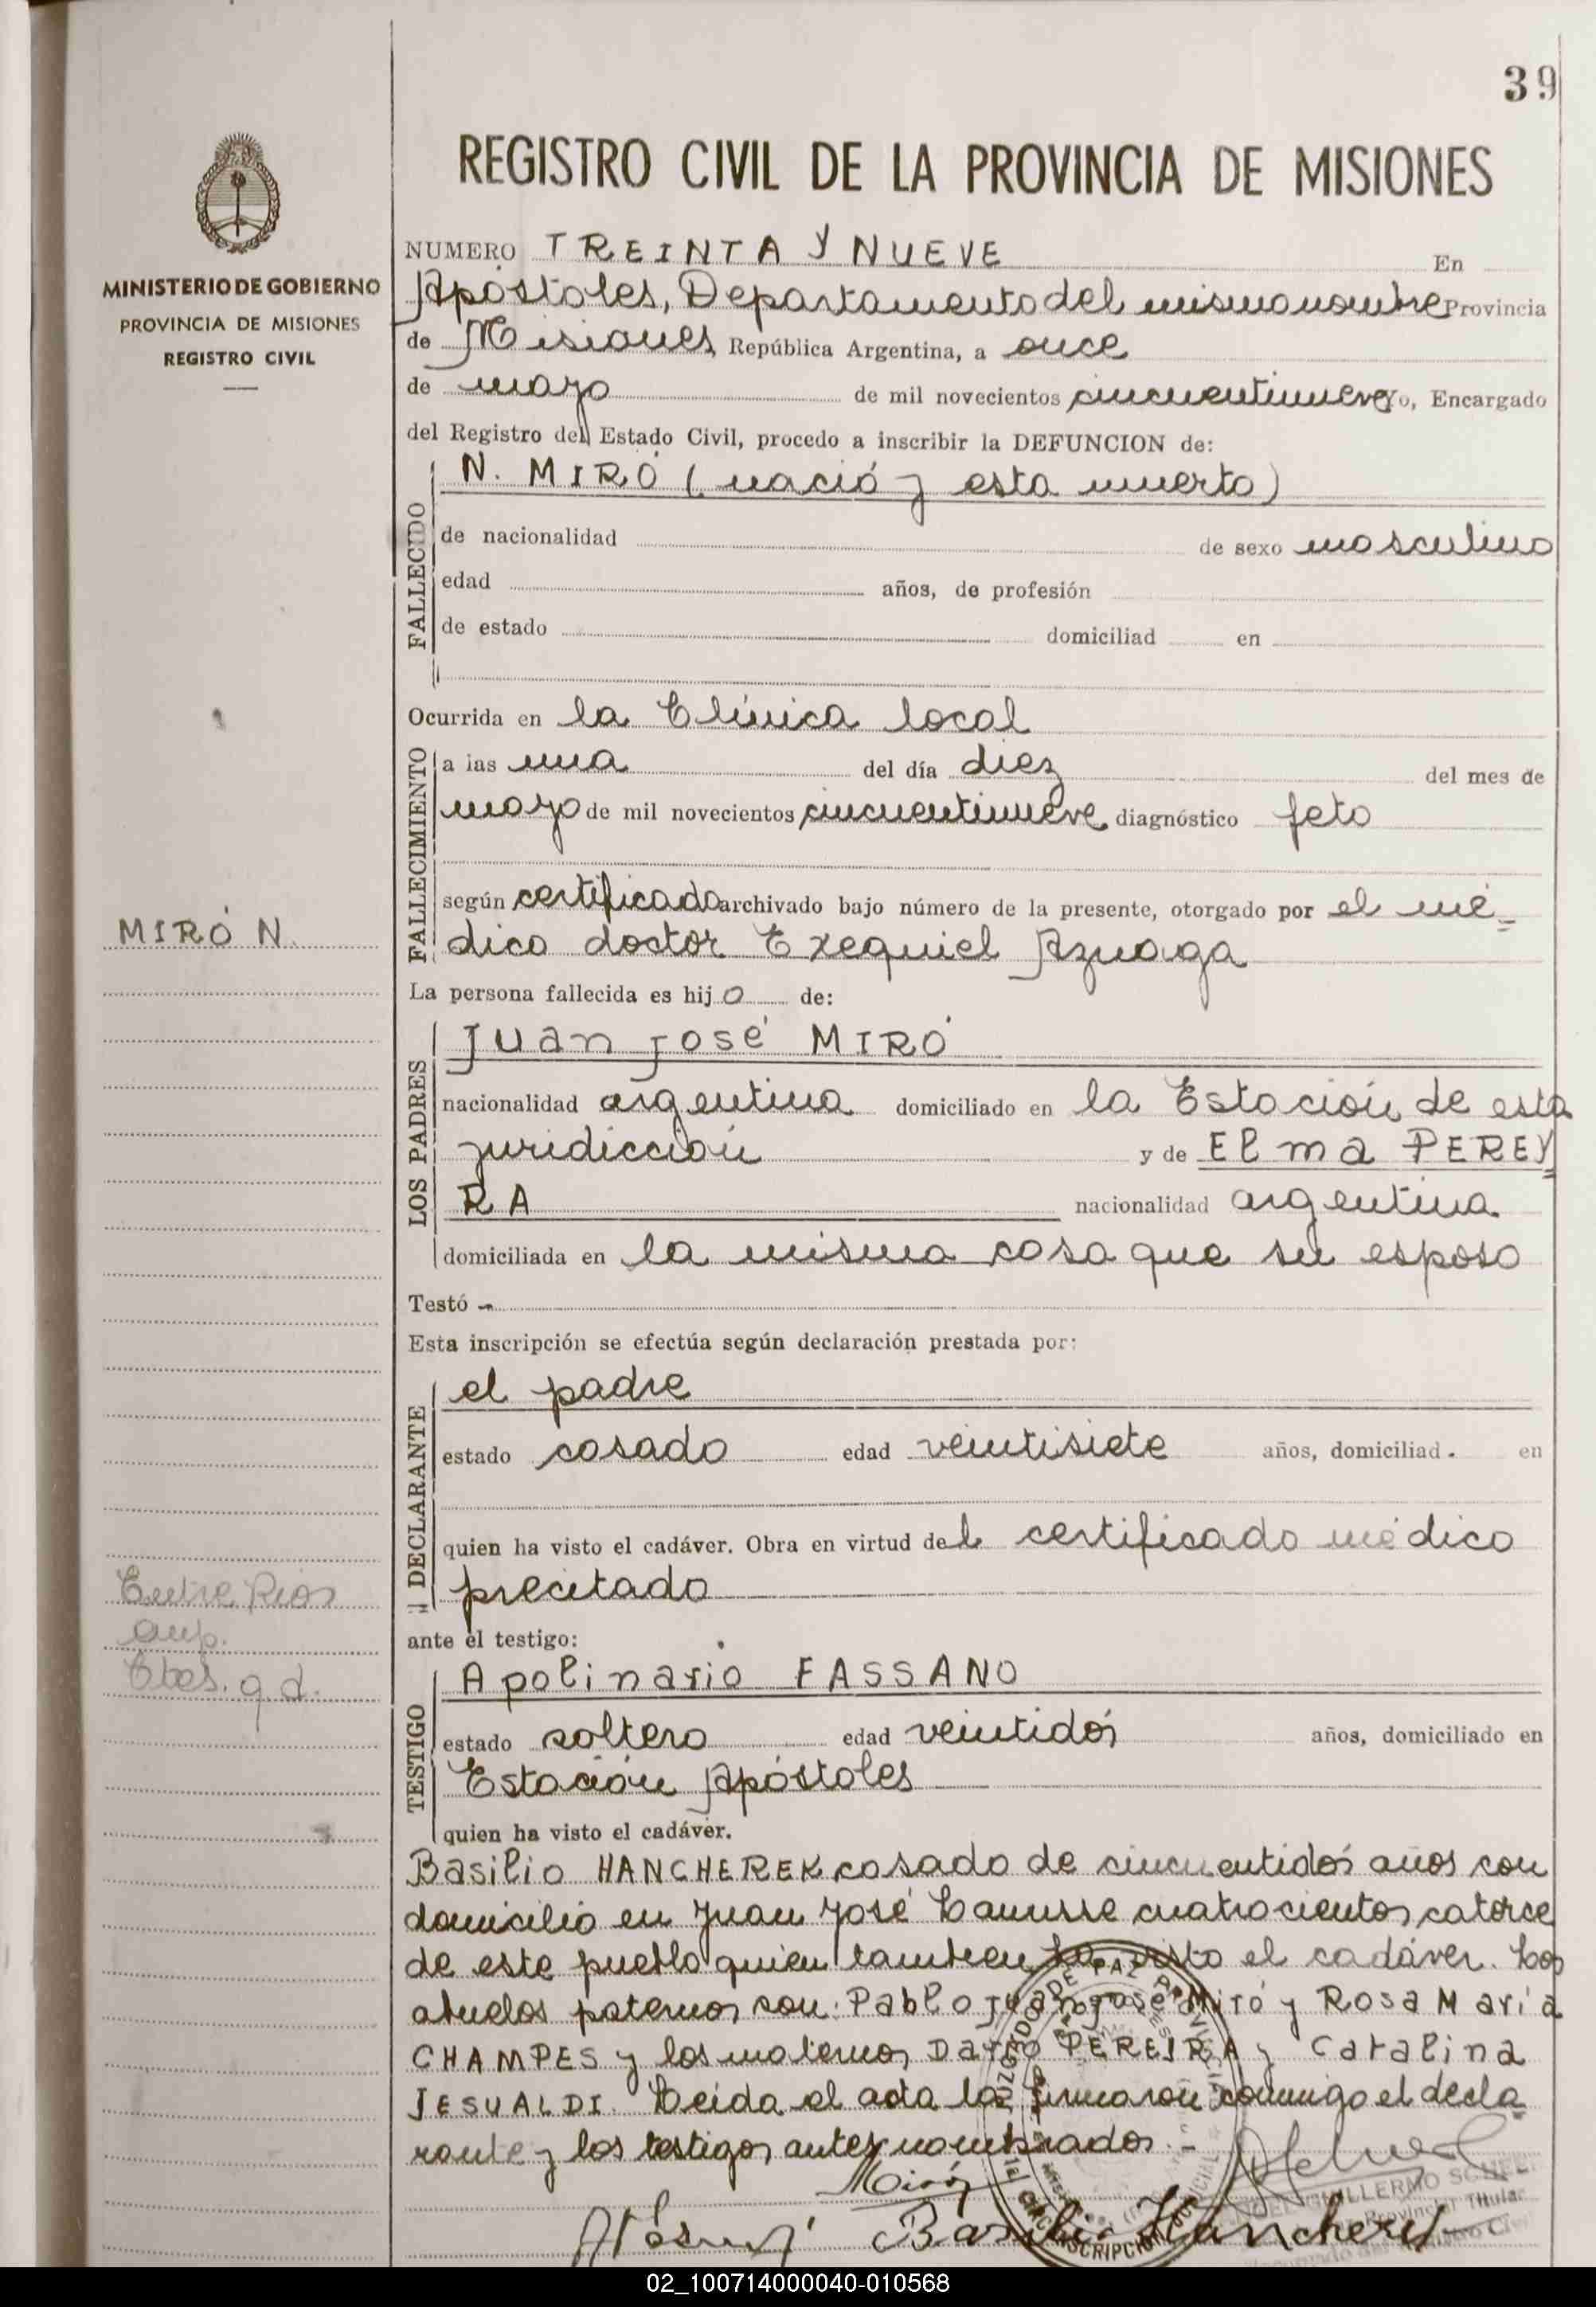 39
REGISTRO CIVIL DE LA PROVINCIA DE MISIONES
MINISTERIO DE GOBIERNO
PROVINCIA DE MISIONES
REGISTRO CIVIL
NUMERO TREINTA Y NUEVE En
Apóstoles, Departamento del mismo nombre Provincia
de Misiones República Argentina, a once
de mayo de mil novecientos cincuentinueve Yo, Encargado
del Registro del Estado Civil, procedo a inscribir la DEFUNCION de:
FALLECIDO
N. MIRÓ (nació y esta muerto)
de nacionalidad de sexo masculino
edad años, de profesión
de estado domiciliad en
Ocurrida en la Clínica local
FALLECIMIENTO
a las una del día diez del mes de
mayo de mil novecientos cincuentinueve diagnóstico feto
según certificado archivado bajo número de la presente, otorgado por el mé=
dico doctor Exequiel Azuaga
MIRÓ N.
La persona fallecida es hijo de:
LOS PADRES
Juan José MIRÓ
nacionalidad argentina domiciliado en la Estación de esta
juridicción y de Elma PEREY=
RA nacionalidad argentina
domiciliada en la misma casa que su esposo
Testó -
Esta inscripción se efectúa según declaración prestada por:
DECLARANTE
el padre
estado casado edad veintisiete años, domiciliad. en
quien ha visto el cadáver. Obra en virtud del certificado médico
precitado
Entre Rios
ante el testigo:
TESTIGO
Apolinario FASSANO
estado soltero edad veintidós años, domiciliado en
Estación Apóstoles
quien ha visto el cadáver.
Basilio HANCHEREK casado de cincuentidós años con
domicilio en Juan José Lanusse cuatrocientos catorce
de este pueblo quien tambien ha visto el cadáver. Los
abuelos paternos son: Pablo Juan José Miró y Rosa María
CHAMPES y los maternos Darío PEREIRA y Catalina
JESUALDI. Leida el acta la firmaron conmigo el decla=
rante y los testigos antes nombrados. -
Miró
Basilio Hancherek
JUZGADO DE PAZ
CIRCUNSCRIPCION JUDICIAL
GUILLERMO
Titular
02_100714000040-010568